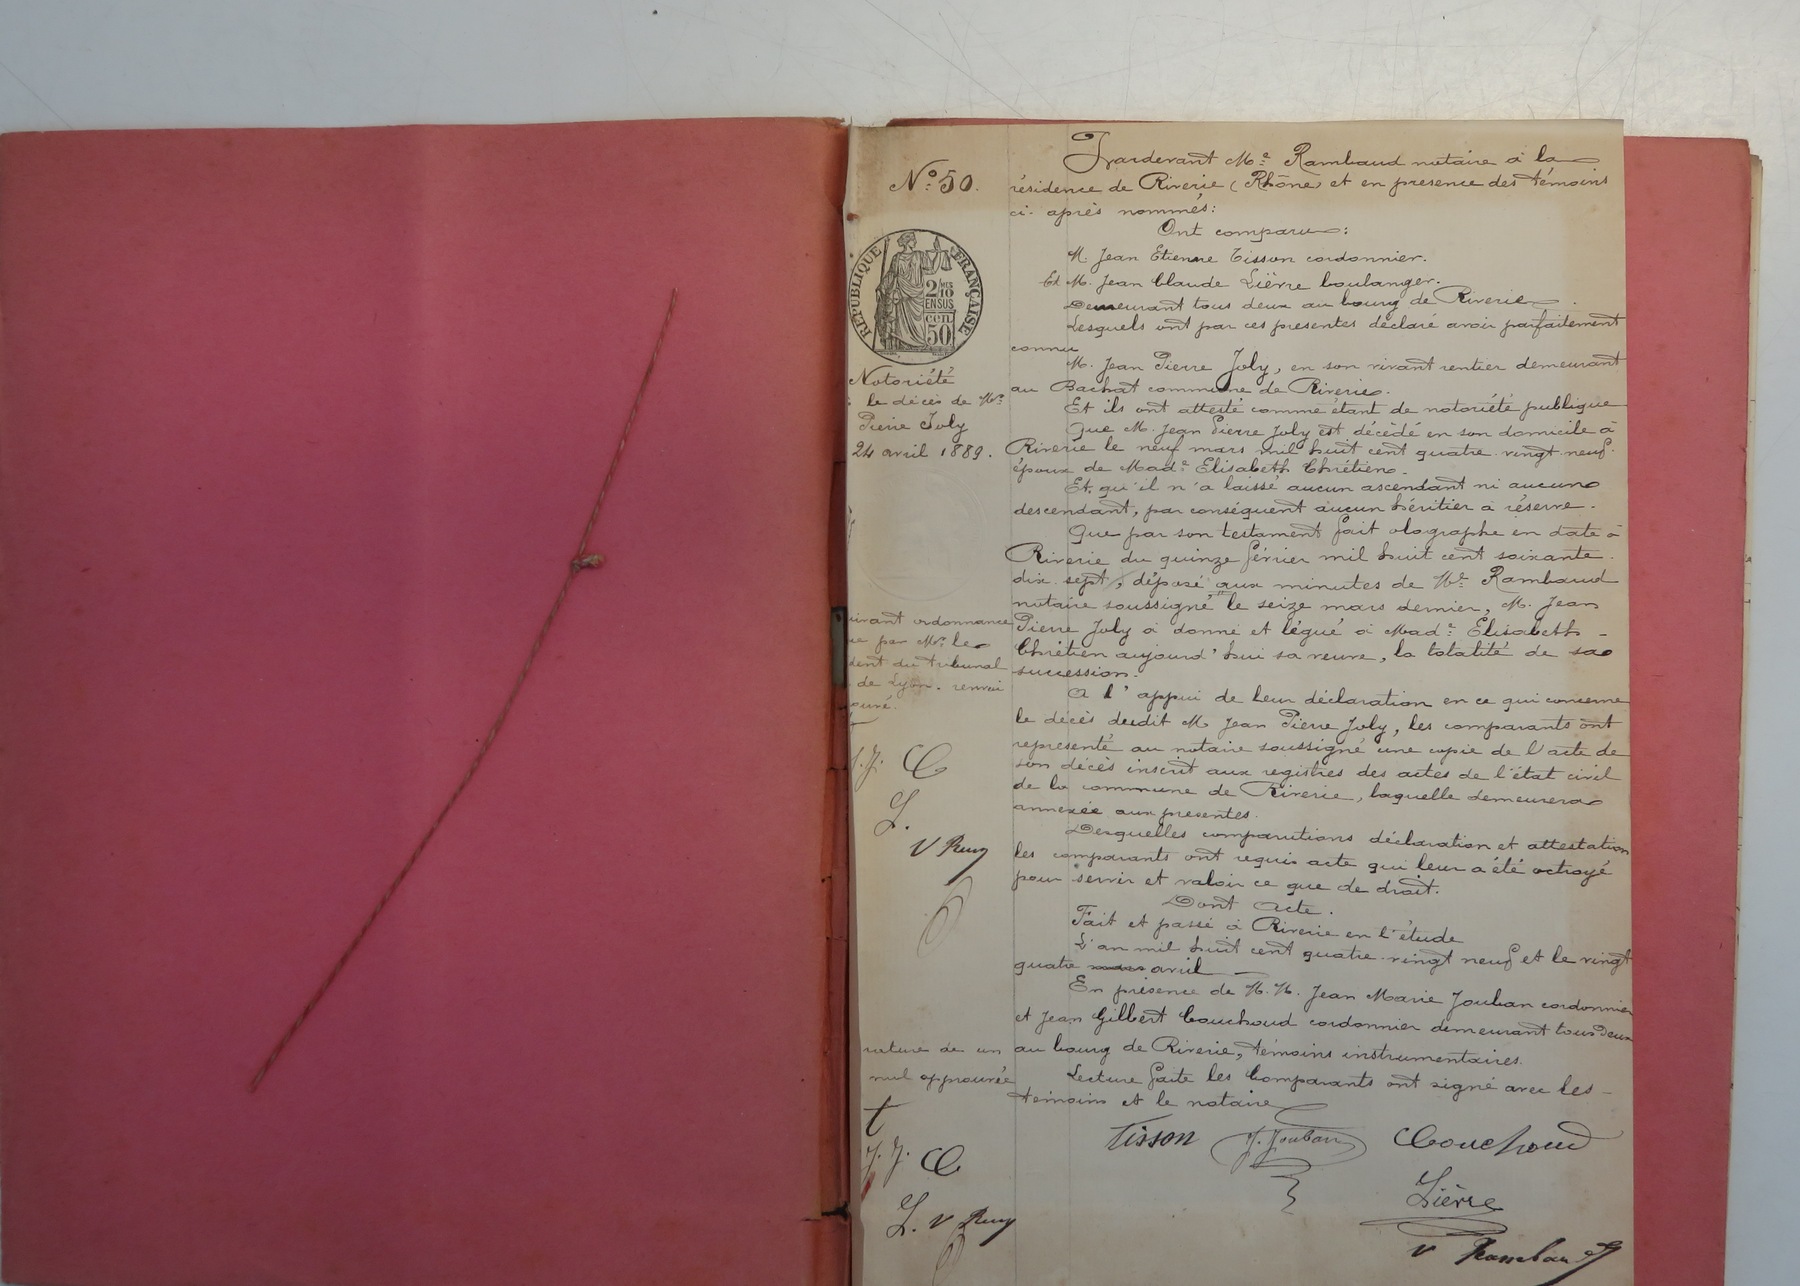 Pardevant Me Rambaud notaire à la
résidence de Riverie (Rhône) et en présence des témoins
ci-après nommés:
Ont comparu:
M. Jean Etienne Tisson cordonnier.
Et M. Jean Claude Lièvre boulanger.
Demeurant tous deux au bourg de Riverie.
Lesquels ont par ces présentes déclaré avoir parfaitement
connu
M. Jean Pierre Joly, en son vivant rentier demeurant
au Bachat commune de Riverie.
Et ils ont attesté comme étant de notoriété publique
Que M. Jean Pierre Joly est décédé en son domicile à
Riverie le neuf mars mil huit cent quatre vingt neuf.
époux de Made Elisabeth Chrétien.
Et qu'il n'a laissé aucun ascendant ni aucun
descendant, par conséquent aucun héritier à réserve.
Que par son testament fait olographe en date à
Riverie du quinze février mil huit cent soixante
dix sept, déposé aux minutes de Me Rambaud
notaire soussigné le seize mars dernier, M. Jean
Pierre Joly a donné et légué à Made Elisabeth
Chrétien aujourd'hui sa veuve, la totalité de sa
succession.
A l'appui de leur déclaration en ce qui concerne
le décès dudit M Jean Pierre Joly, les comparants ont
représenté au notaire soussigné une copie de l'acte de
son décès inscrit aux registres des actes de l'état civil
de la commune de Riverie, laquelle demeurera
annexée aux présentes.
Desquelles comparutions déclaration et attestation
les comparants ont requis acte qui leur a été octroyé
pour servir et valoir ce que de droit.
Dont Acte.
Fait et passé à Riverie en l'étude
L'an mil huit cent quatre-vingt neuf et le vingt
quatre avril
En présence de M.M. Jean Marie Jouban cordonnier
et Jean Gilbert Couchoud cordonnier demeurant tous deux
au bourg de Riverie, témoins instrumentaires.
Lecture faite les Comparants ont signé avec les
témoins et le notaire
Tisson J. Jouban Couchoud
Lièvre
V Rambaud
No 50.
REPUBLIQUE FRANÇAISE
2/10 MES
EN SUS
50 cen
Notoriété
le décès de Mr
Pierre Joly
24 avril 1889.
uivant ordonnance
ue par Mr le
dent du tribunal
de Lyon. renvoi
ouvé.
J. J. C
L.
V Rm
rature de un
nul approuvée
t
J. J. C
L. V Rm